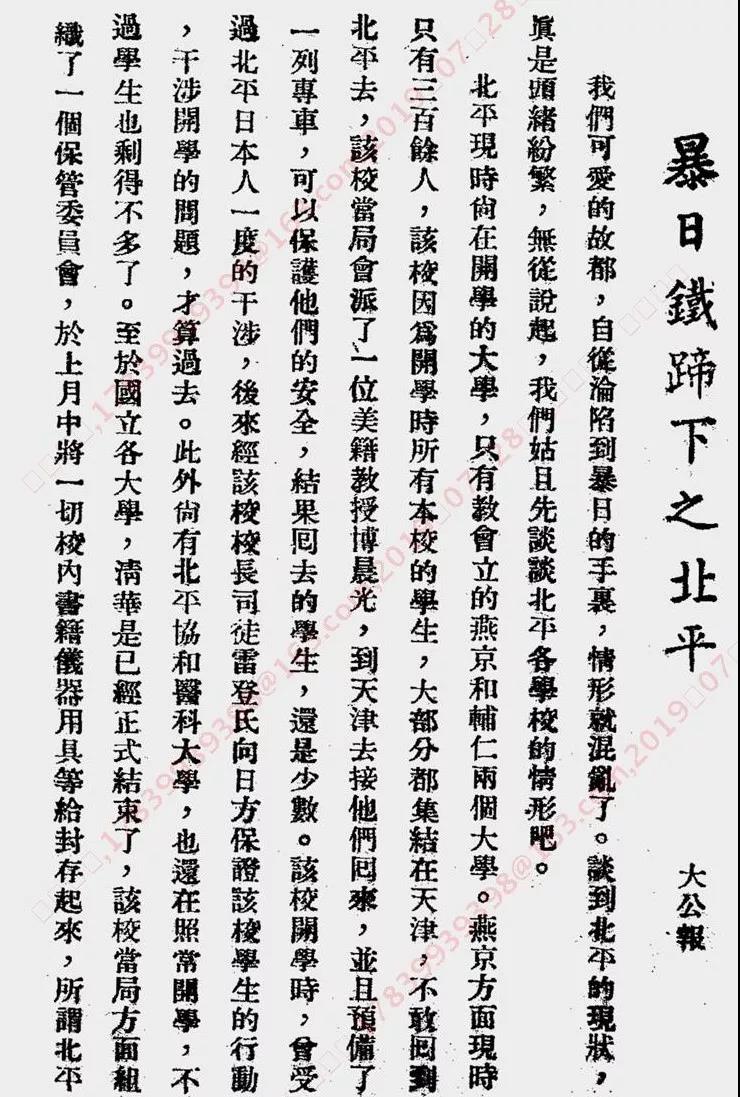 暴日鐵蹄下之北平
大公報
我們可愛的故都，自從淪陷到暴日的手裏，情形就混亂了。談到北平的現狀，
眞是頭緒紛繁，無從說起，我們姑且先談談北平各學校的情形吧。
北平現時尙在開學的大學，只有敎會立的燕京和輔仁兩個大學。燕京方面現時
只有三百餘人，該校因爲開學時所有本校的學生，大部分都集結在天津，不敢囘到
北平去，該校當局會派了一位美籍敎授博晨光，到天津去接他們囘來，並且預備了
一列專車，可以保護他們的安全，結果囘去的學生，還是少數。該校開學時，曾受
過北平日本人一度的干涉，後來經該校校長司徒雷登氏向日方保證該校學生的行動
，干涉開學的問題，才算過去。此外尙有北平協和醫科大學，也還在照常開學，不
過學生也剩得不多了。至於國立各大學，清華是已經正式結束了，該校當局方面組
織了一個保管委員會，於上月中將一切校內書籍儀器用具等給封存起來，所謂北平